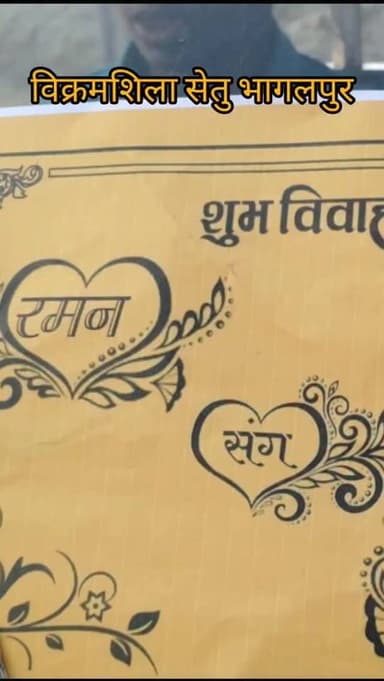 विक्रमशिला सेतु भागलपुर
शुभ विवाह
रमन
संग